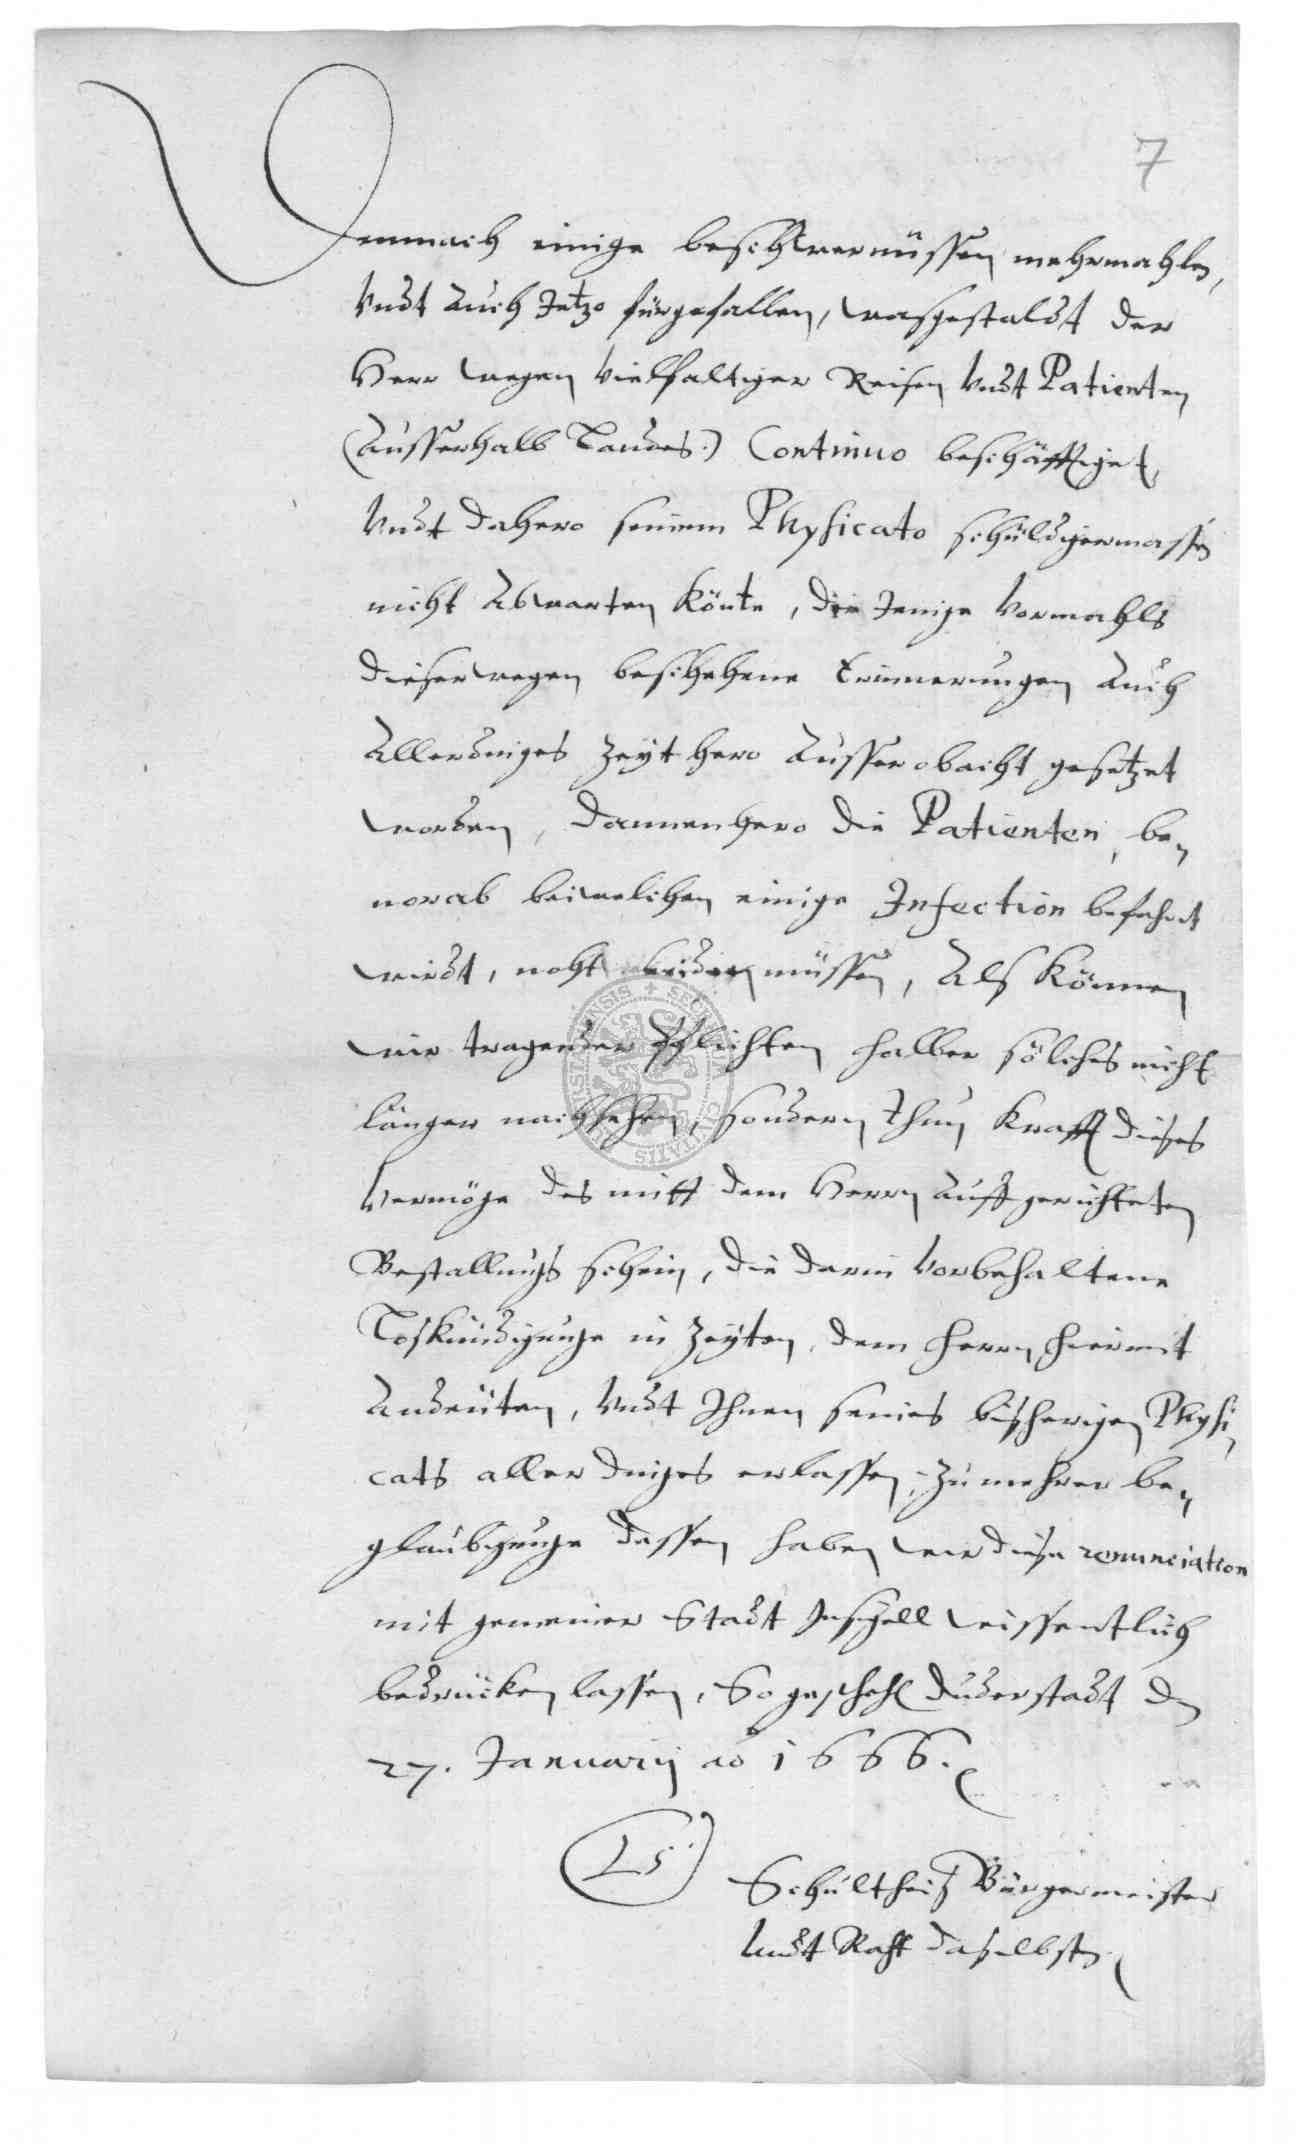 7
Demnach einige beschwernüssen mehrmahlen,
Vndt Auch Jetzo fürgefallen, wasgestaldt der
Herr wegen Vielfaltiger Reisen Vndt Patienten
(Ausserhalb Landes:) Continuo beschäfftiget,
Vndt dahero seinem Physicato schüldigermassen
nicht Abwarten Könte, die Jenige Vormahls
dieserwegen beschehene Erinnerungen Auch
Allerdinges Zeythero Ausser obacht gesetzet
worden, dannenhero die Patienten, be„
norab beiwelchen einige Infection befahret
wirdt, noht leiden müssen, Alß Können
wir tragender Pflichten halber solches nicht
länger nachsehen, sondern thun Krafft dieses
Vermöge des mitt dem Herrn Auffgerichteten
Bestallungs schein, die darin Vorbehaltene
Loskündigunge in Zeyten, dem Herrn hiermit
Andeüten, Vndt Ihnen seines bißherigen Physi„
cats aller dinges erlassen, Zu mehrer be„
glaubigunge dessen haben wir diese renunciation
mit gemeiner Stadt Insigell wissentlich
bedrücken lassen, So geschehen Duderstadt den
27. Januarij ao 1666.
LS
Schültheiß Bürgermeister
Vndt Raht daselbsten
SECRETA CIVITATIS